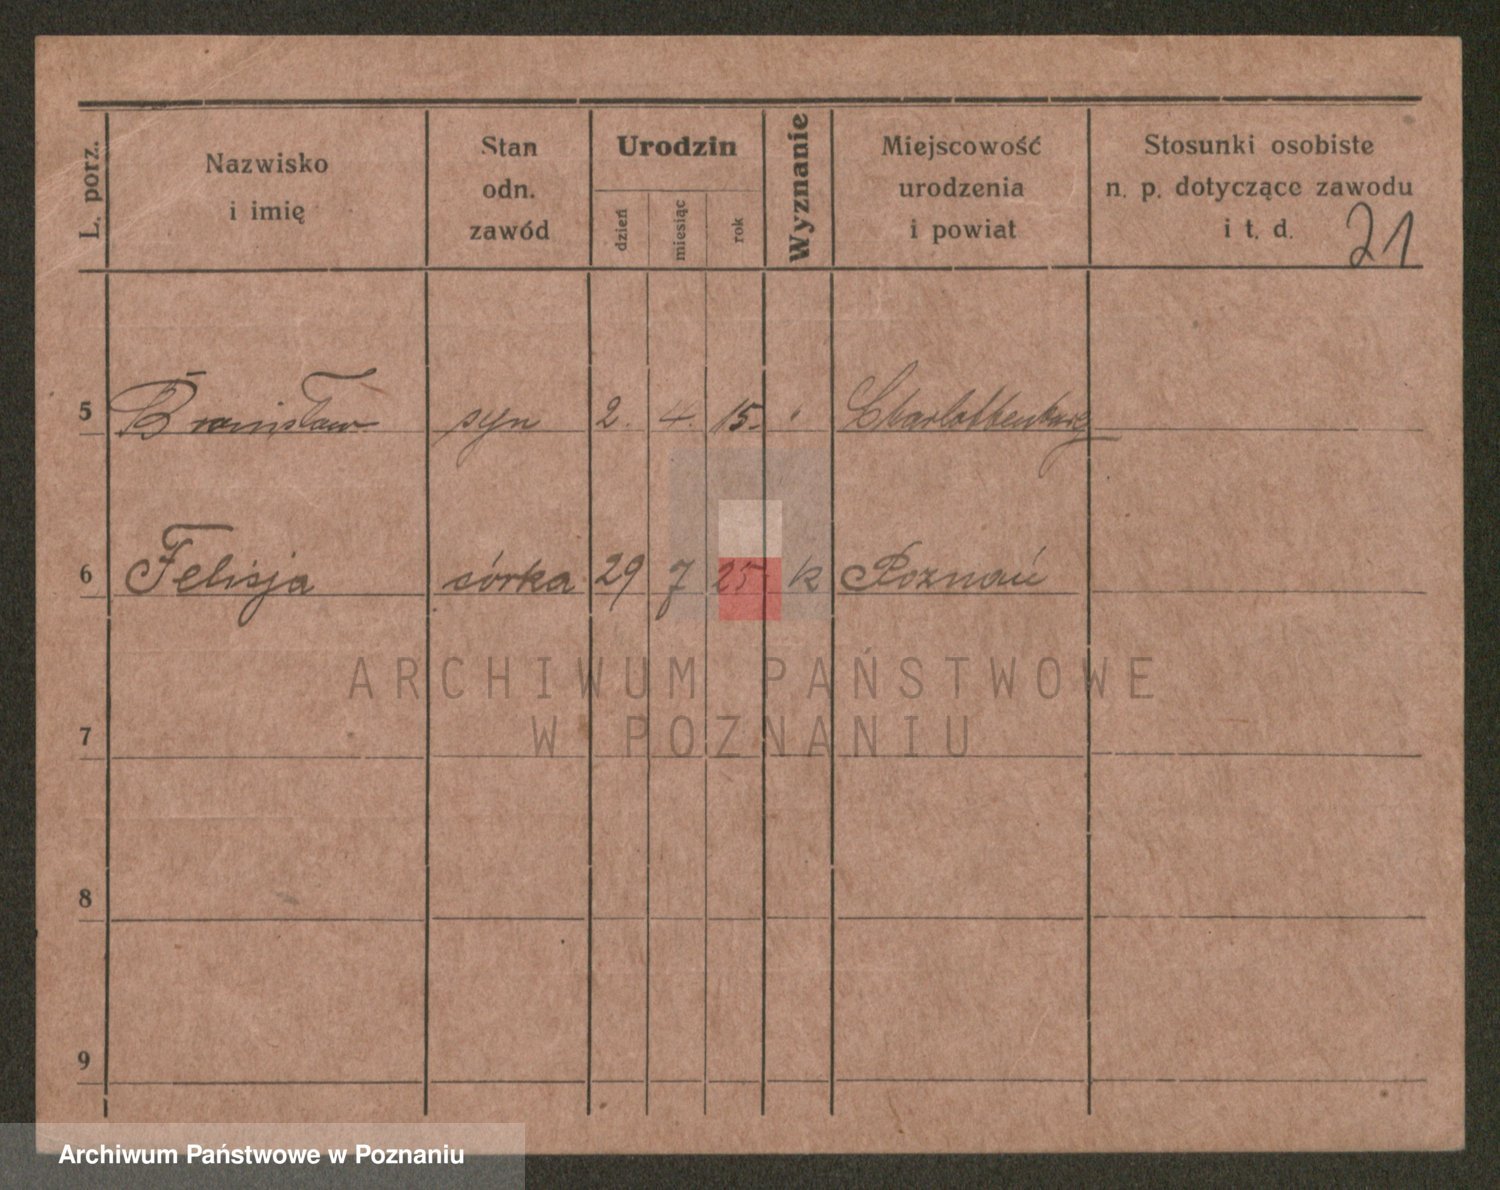 L. porz.
Nazwisko
i imię
Stan
odn.
zawód
Urodzin
dzień
miesiąc
rok
Wyznanie
Miejscowość
urodzenia
i powiat
Stosunki osobiste
n. p. dotyczące zawodu
i t. d.
21
5 Bronisław syn 2. 4. 15. " Charlottenburg
6 Felisja córka 29 7 25. k Poznań
ARCHIWUM PAŃSTWOWE
W POZNANIU
7
8
9
Archiwum Państwowe w Poznaniu